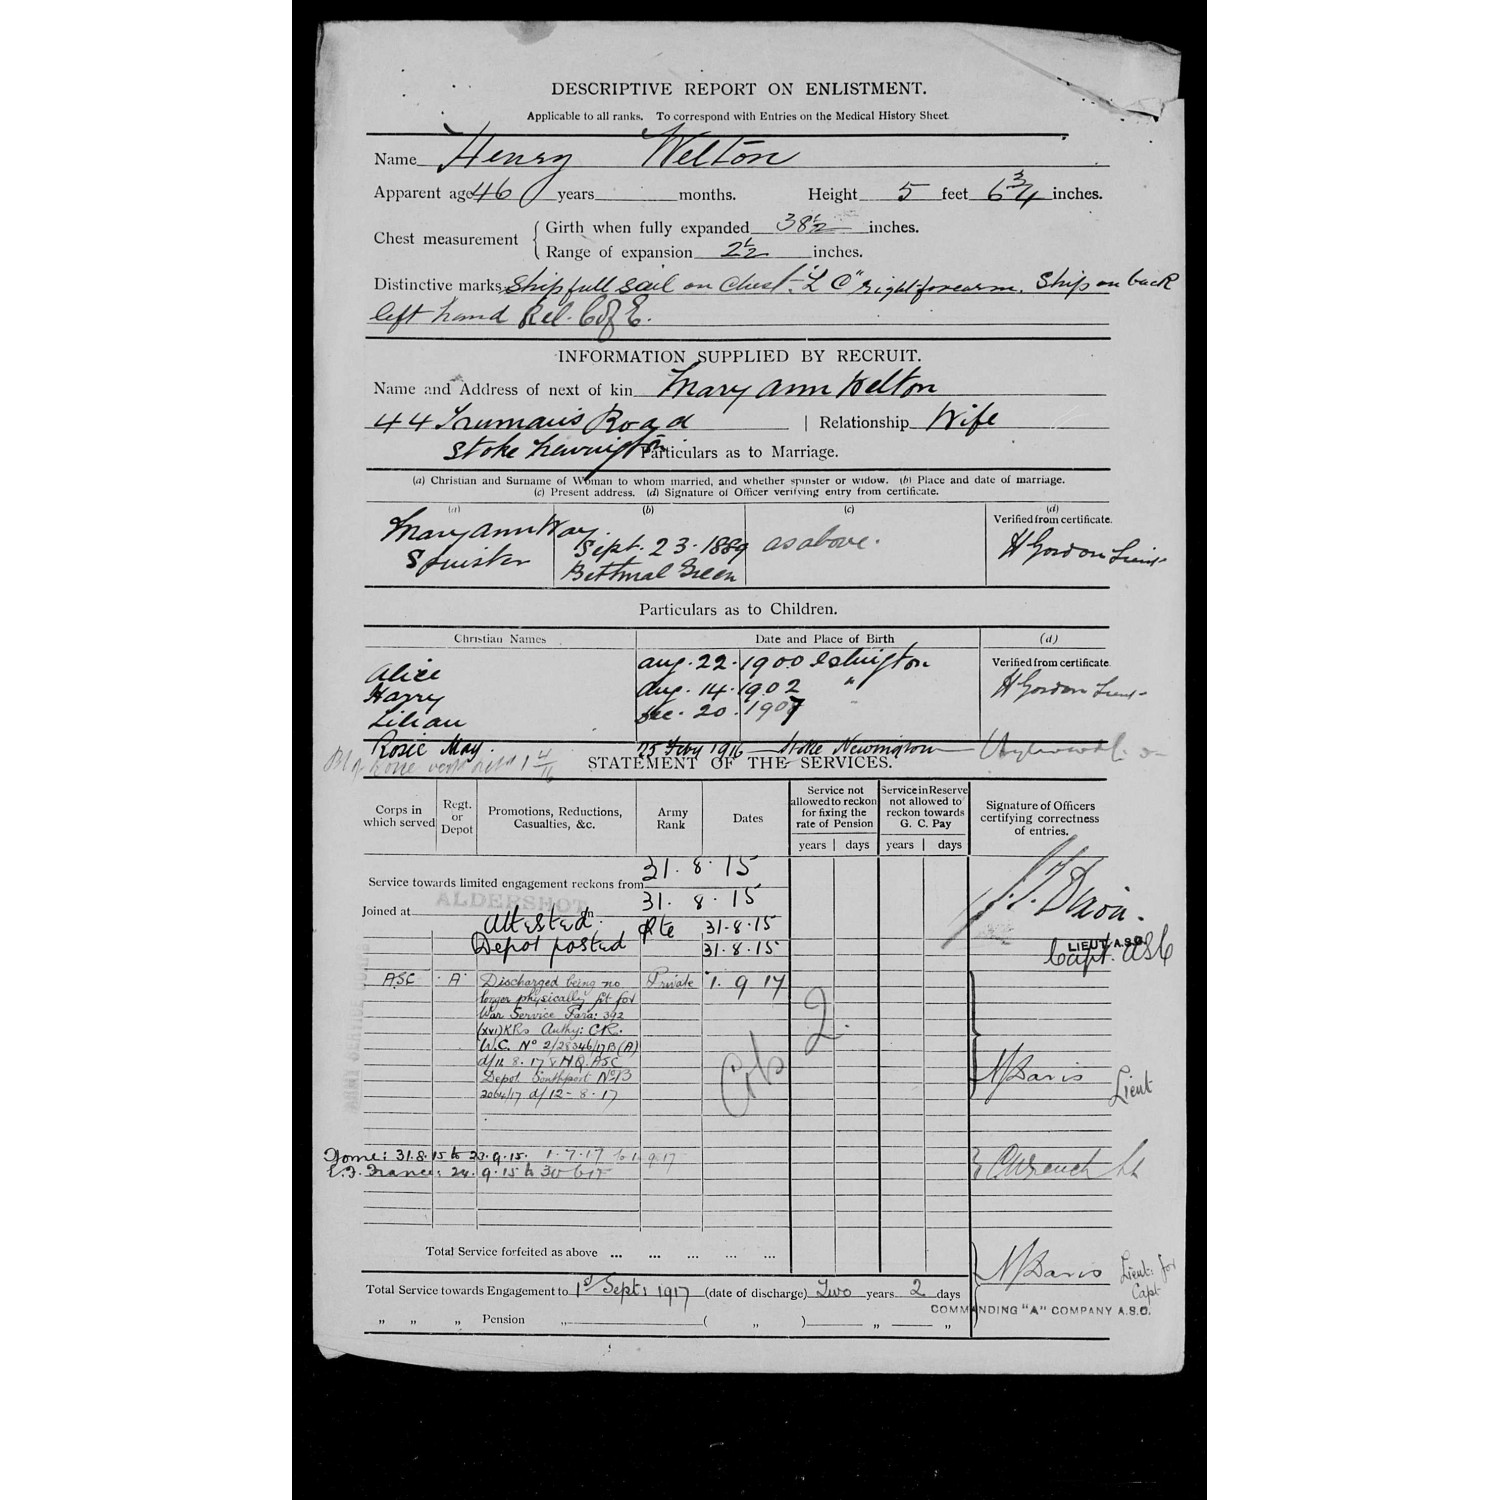 DESCRIPTIVE REPORT ON ENLISTMENT.
Applicable to all ranks. To correspond with Entries on the Medical History Sheet.
Name Henry Welton
Apparent age 46 years months. Height 5 feet 6 3/4 inches.
Chest measurement { Girth when fully expanded 38 1/2 inches.
Range of expansion 2 1/2 inches.
Distinctive marks Ship full sail on Chest. "L C" right forearm. Ship on back
left hand Rel. C of E.
INFORMATION SUPPLIED BY RECRUIT.
Name and Address of next of kin Mary Ann Welton
44 Truman's Road | Relationship Wife
Stoke Newington
Particulars as to Marriage.
(a) Christian and Surname of Woman to whom married, and whether spinster or widow. (b) Place and date of marriage.
(c) Present address. (d) Signature of Officer verifying entry from certificate.
(a) (b) (c) (d)
Verified from certificate.
Mary Ann Way.
Spinster
Sept. 23. 1889
Bethnal Green
as above.
H Gordon Lieut
Particulars as to Children.
Christian Names Date and Place of Birth (d)
Verified from certificate.
Alice Aug. 22. 1900 Islington
Harry Aug. 14. 1902 "
Lilian Dec. 20. 1907 "
H Gordon Lieut
Rosie May. 25 Feby 1916 Stoke Newington
STATEMENT OF THE SERVICES.
Corps in which served Regt. or Depot Promotions, Reductions, Casualties, &c. Army Rank Dates Service not allowed to reckon for fixing the rate of Pension Service in Reserve not allowed to reckon towards G. C. Pay Signature of Officers certifying correctness of entries.
years | days years | days
Service towards limited engagement reckons from 31. 8. 15
ALDERSHOT
Joined at on 31. 8. 15
Attested. Pte 31.8.15
Depot posted 31.8.15
LIEUT A.S.C.
Capt. ASC
ASC A Discharged being no Private 1. 9 17
longer physically fit for
War Service Para: 392
(xvi) KRs Authy: C.R.
W.C. No 2/28346/17B (A)
d/12 8. 17 & HQ. ASC
Depot Southport No B
2064/17 d/12-8.17
2
N Davis Lieut
Home: 31.8.15 to 23.9.15. 1.7.17 to 1.9.17
E.F. France: 24.9.15 to 30 6 17
Total Service forfeited as above ... ... ... ...
N Davis Lieut: for
Capt
Total Service towards Engagement to 1st Sept: 1917 (date of discharge) Two years 2 days
COMMANDING "A" COMPANY A.S.C.
" " " Pension " ( " ) " "